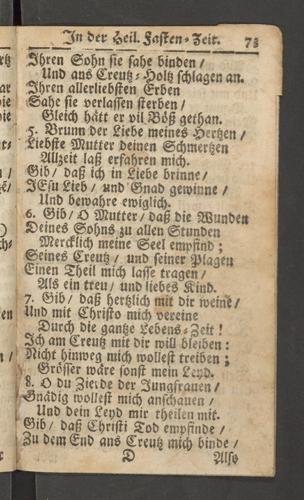 In der Heil. Fasten-Zeit. 73
Ihren Sohn sie sahe binden /
Und ans Creutz-Holtz schlagen an.
Ihren allerliebsten Erben
Sahe sie verlassen sterben /
Gleich hätt er vil Böß gethan.
5. Brunn der Liebe meines Hertzen /
Liebste Mutter deinen Schmertzen
Allzeit laß erfahren mich.
Gib / daß ich in Liebe brinne /
JEsu Lieb / und Gnad gewinne /
Und bewahre ewiglich.
6. Gib / O Mutter / daß die Wunden
Deines Sohns zu allen Stunden
Mercklich meine Seel empfind ;
Seines Creutz / und seiner Plagen
Einen Theil mich lasse tragen /
Als ein treu / und liebes Kind.
7. Gib / daß hertzlich mit dir weine /
Und mit Christo mich vereine
Durch die gantze Lebens-Zeit !
Ich am Creutz mit dir will bleiben :
Nicht hinweg mich wollest treiben ;
Grösser wäre sonst mein Leyd.
8. O du Zierde der Jungfrauen /
Gnädig wollest mich anschauen /
Und dein Leyd mir theilen mit.
Gib / daß Christi Tod empfinde /
Zu dem End ans Creutz mich binde /
D Also